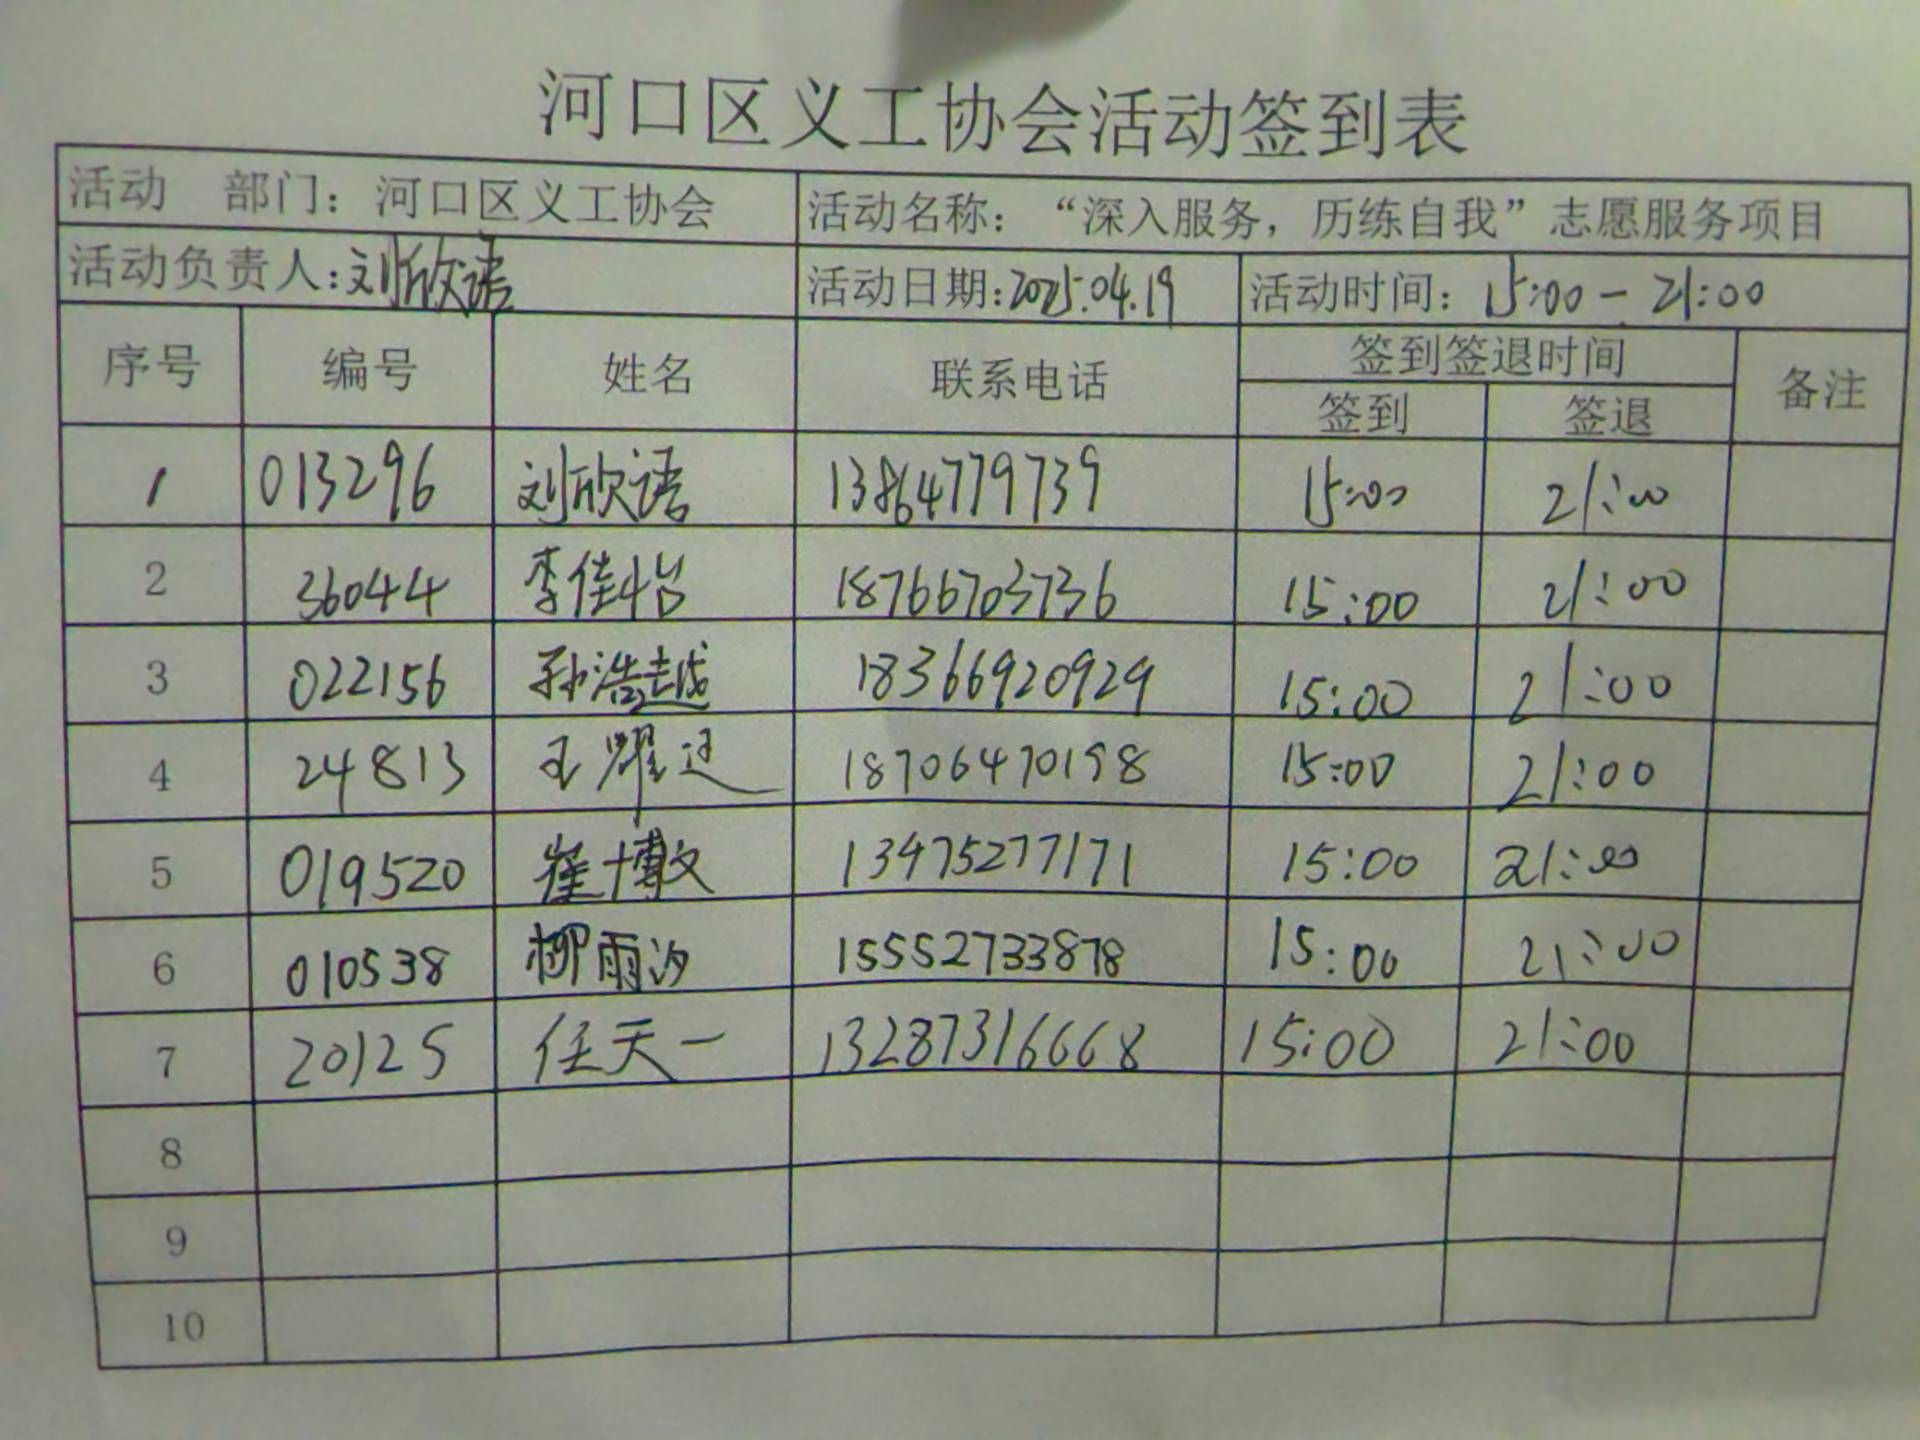 河口区义工协会活动签到表
活动 部门：河口区义工协会 活动名称：“深入服务，历练自我”志愿服务项目
活动负责人：刘欣语 活动日期：2025.04.19 活动时间：15:00-21:00
序号 编号 姓名 联系电话 签到签退时间 备注
签到 签退
1 013296 刘欣语 13864779739 15:00 21:00
2 36044 李佳怡 18766703736 15:00 21:00
3 022156 孙浩越 18366920929 15:00 21:00
4 24813 王耀 18706470198 15:00 21:00
5 019520 崔博文 13475277171 15:00 21:00
6 010538 柳雨汐 15552733878 15:00 21:00
7 20125 任天一 13287316668 15:00 21:00
8
9
10